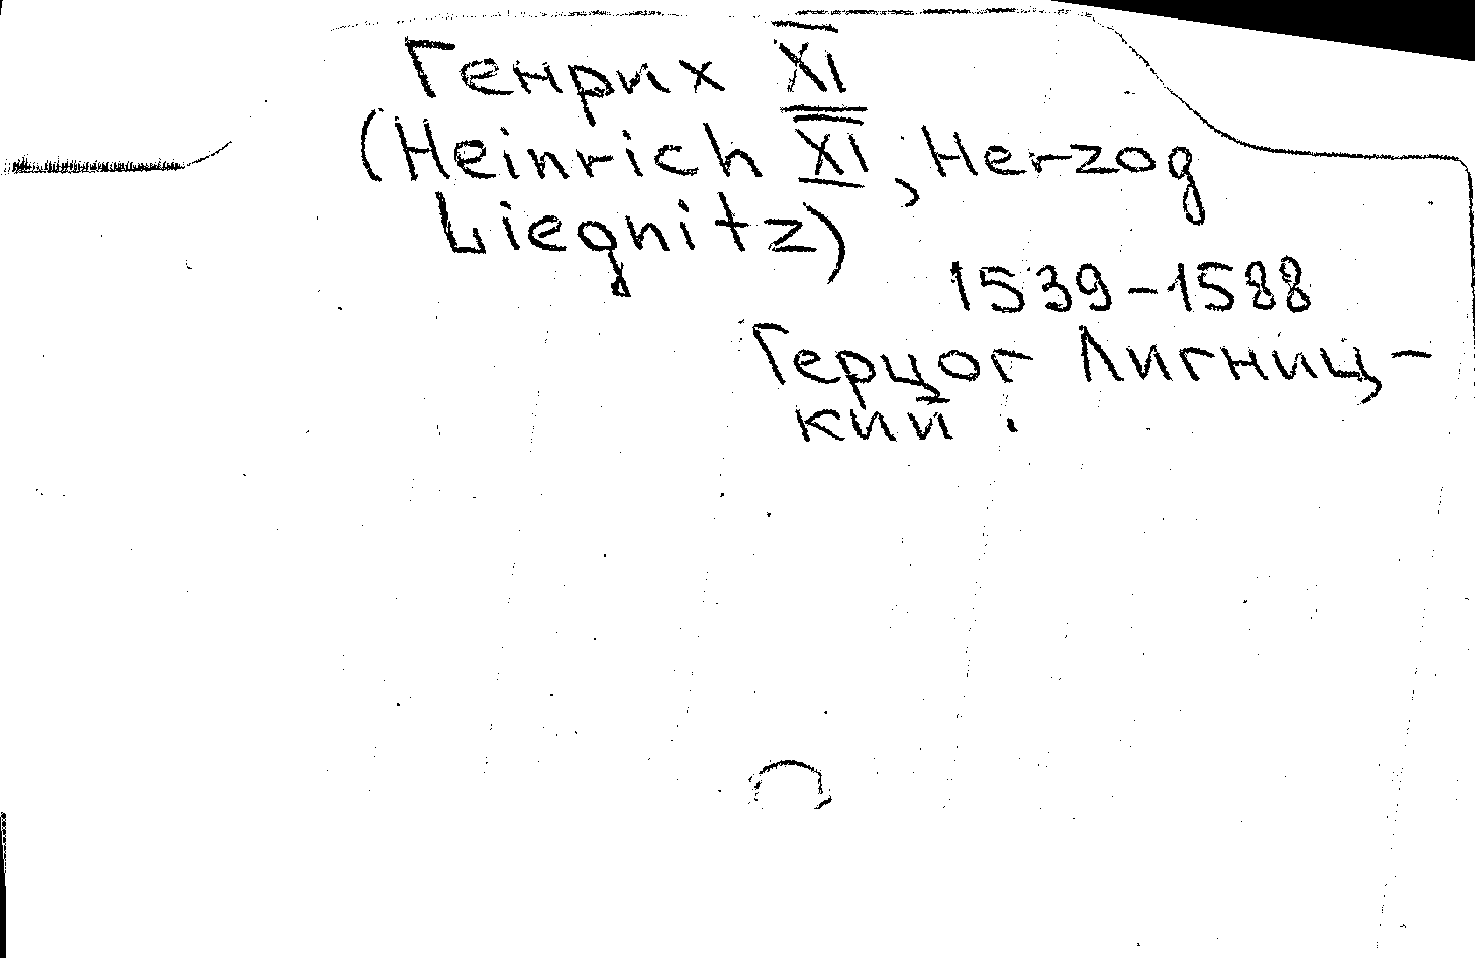 Генрих XI
(Heinrich XI, Herzog
Liegnitz)
1539-1588
Герцог Лигниц-
кий.